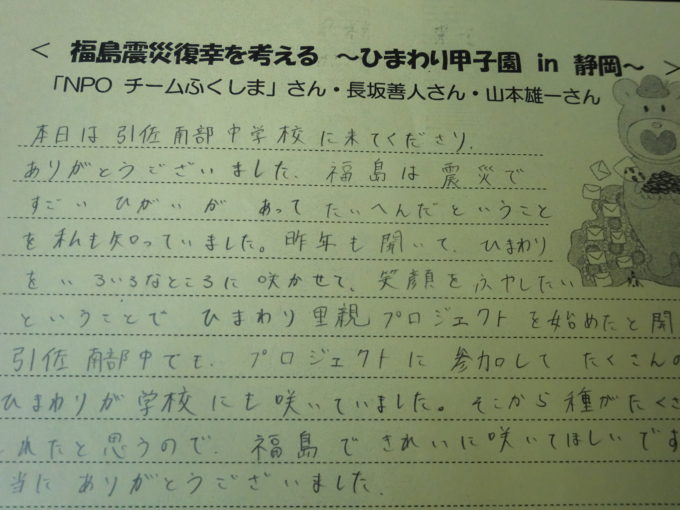 ＜ 福島震災復幸を考える ～ひまわり甲子園 in 静岡～ ＞
「NPO チームふくしま」さん・長坂善人さん・山本雄一さん
本日は引佐南部中学校に来てくださり、
ありがとうございました。福島は震災で
すごいひがいがあってたいへんだということ
を私も知っていました。昨年も聞いて、ひまわり
をいろいろなところに咲かせて、笑顔をふやしたい
ということでひまわり里親プロジェクトを始めたと聞
引佐南部中でも、プロジェクトに参加してたくさんの
ひまわりが学校にも咲いていました。そこから種がたくさ
れたと思うので、福島できれいに咲いてほしいです
当にありがとうございました。